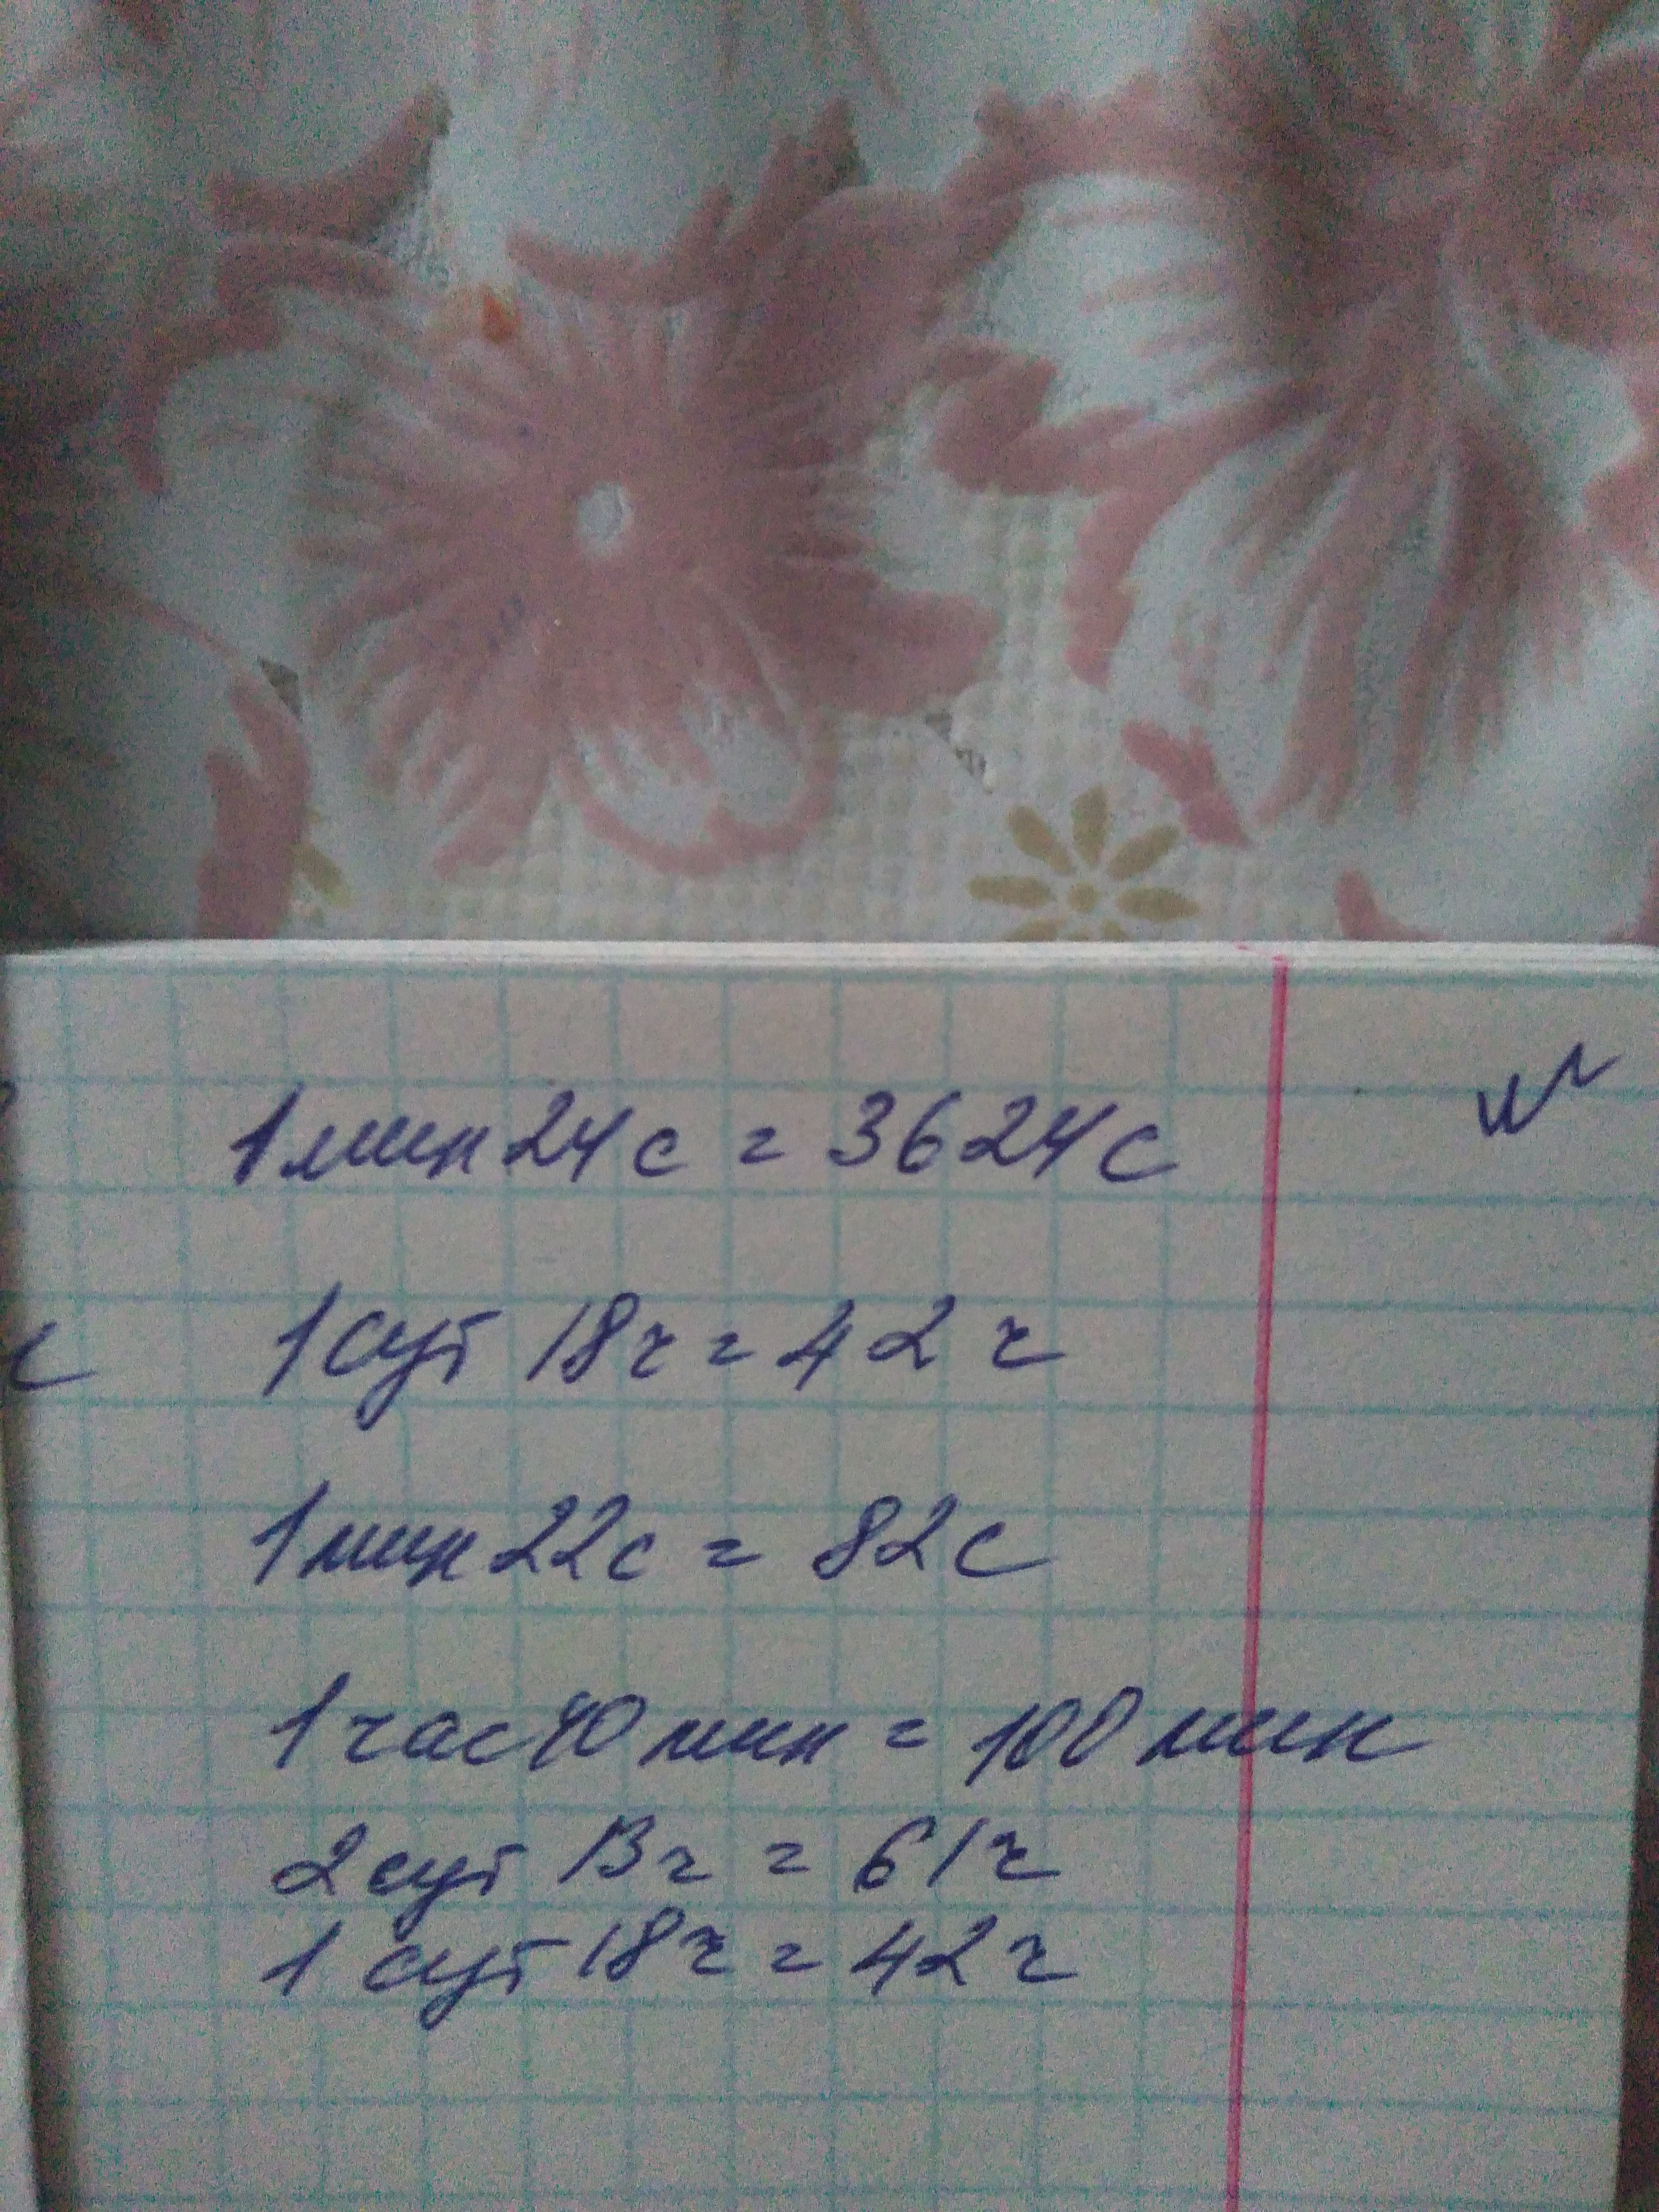 1 мин 24 с = 3624 с
1 сут 18 ч = 42 ч
1 мин 22 с = 82 с
1 час 40 мин = 100 мин
2 сут 13 ч = 61 ч
1 сут 18 ч = 42 ч